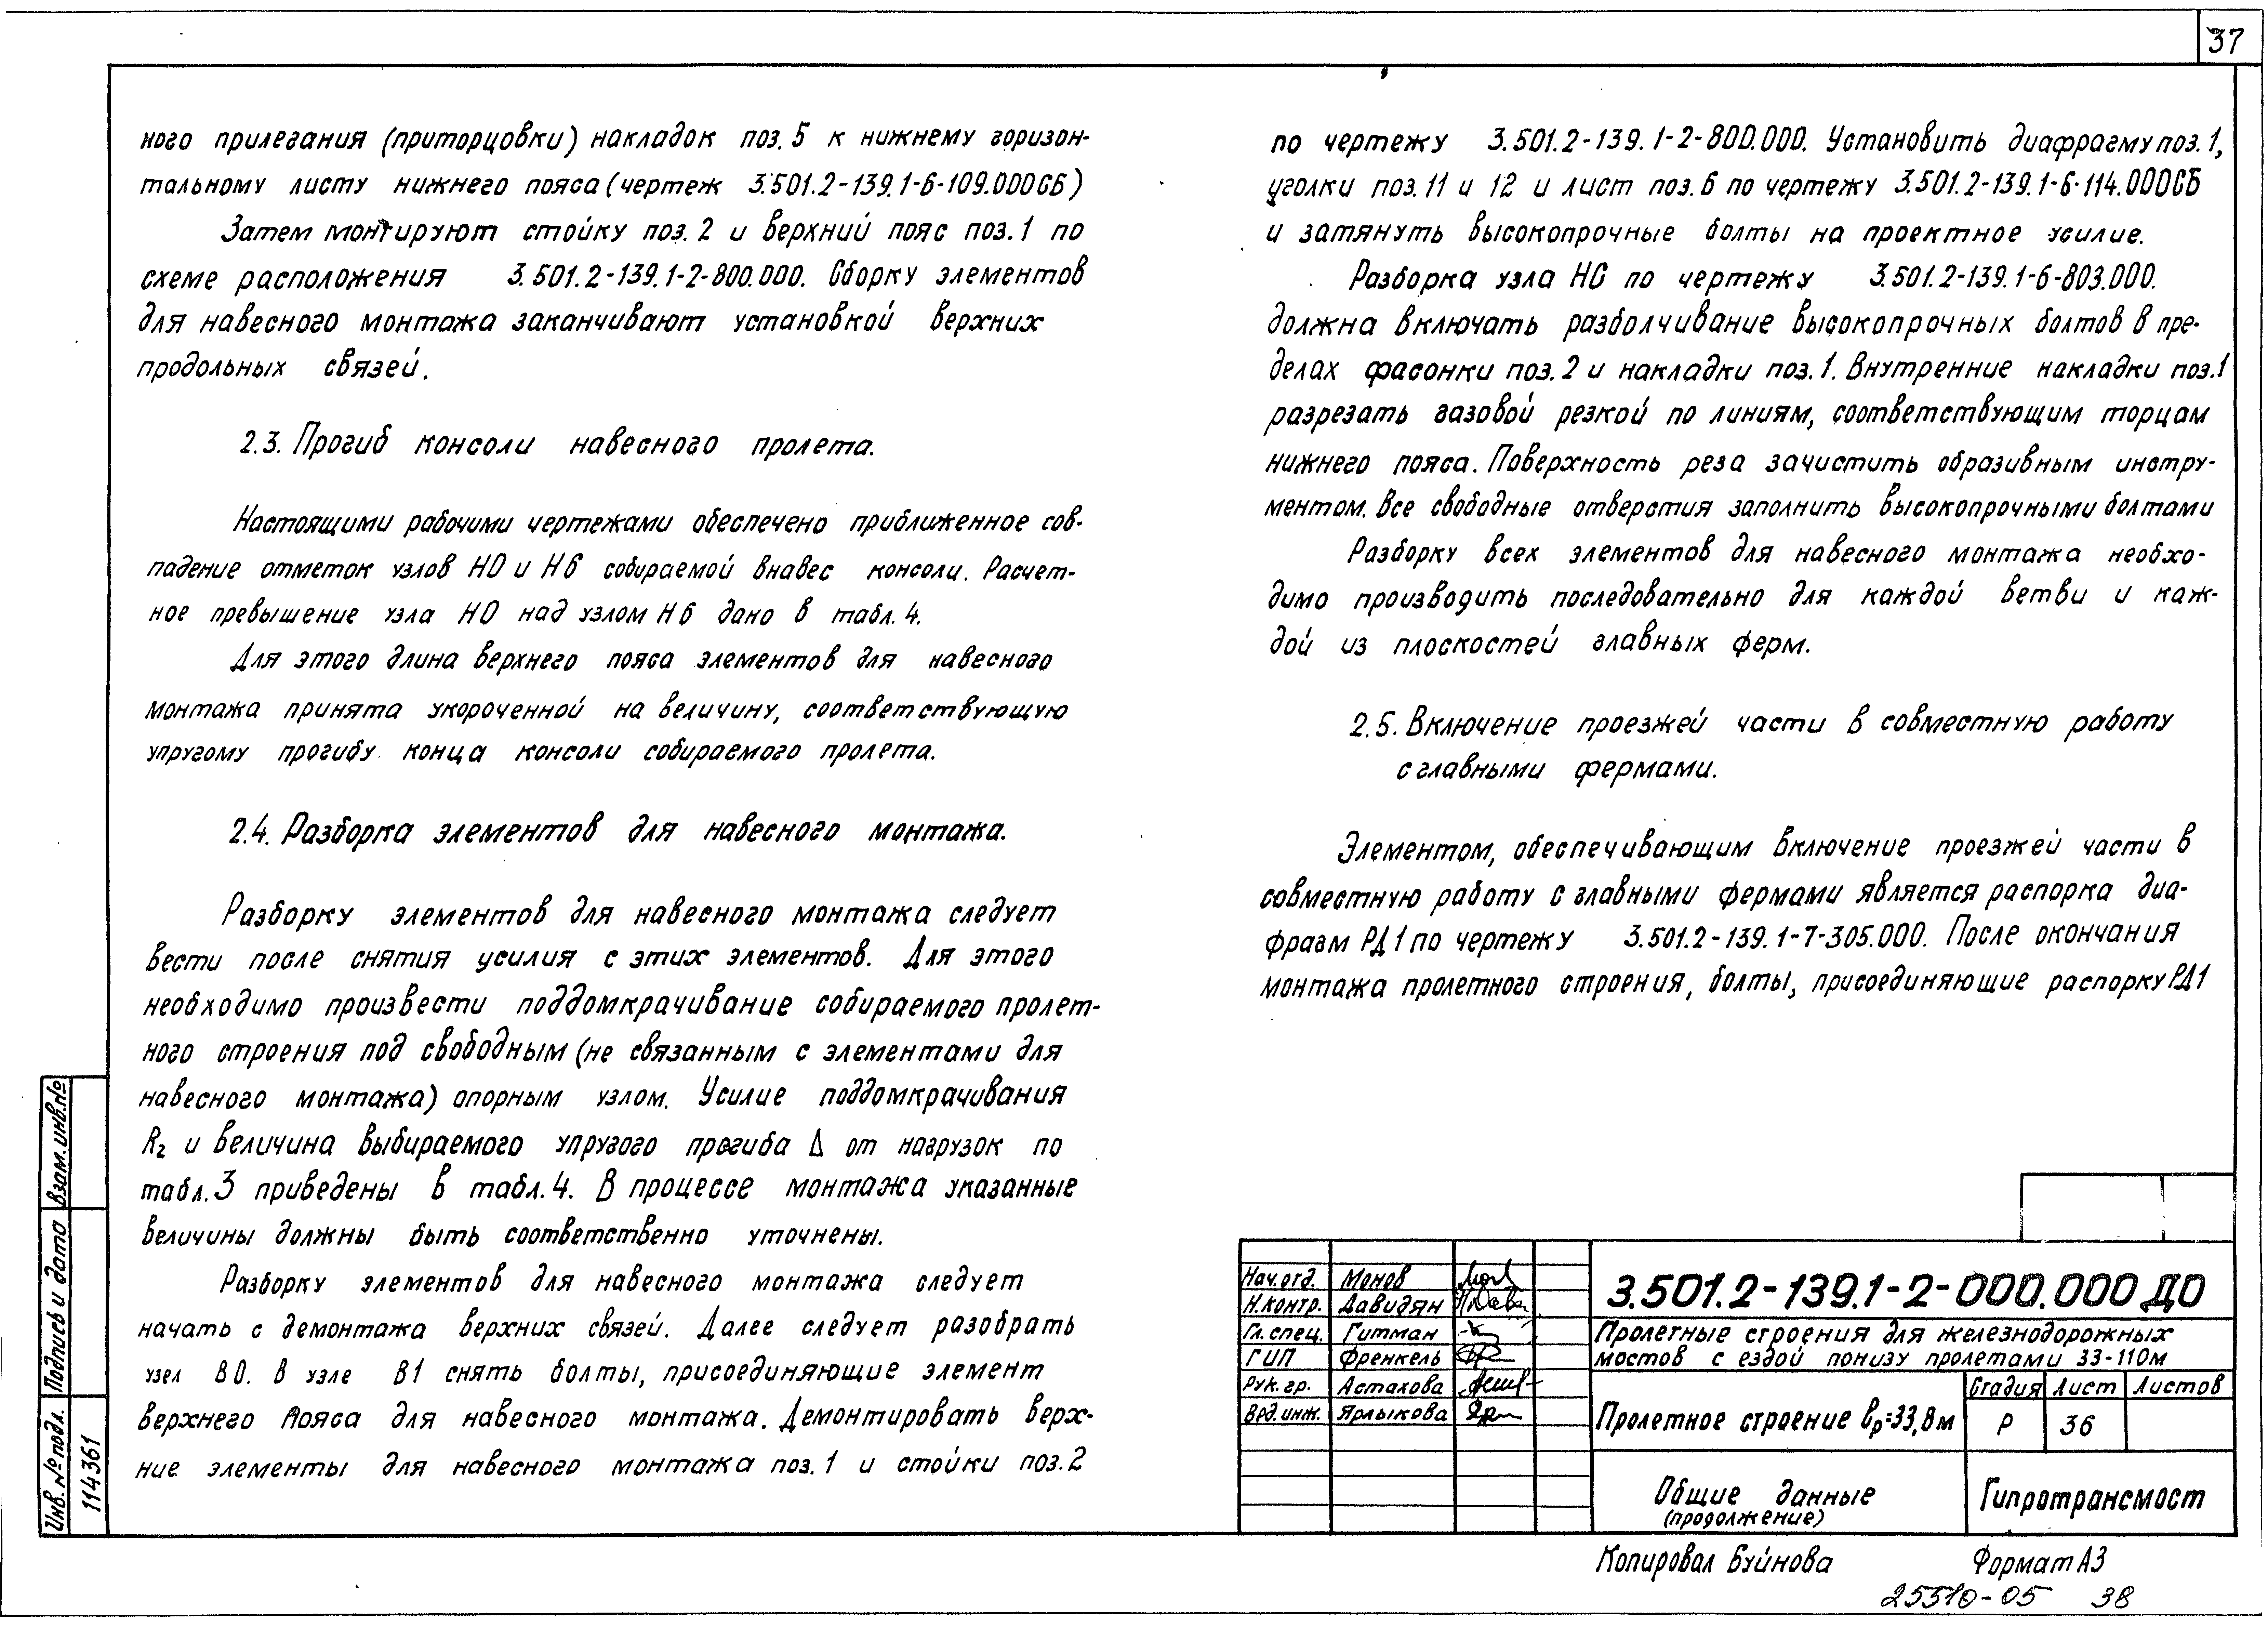 37
ного прилегания (приторцовки) накладок поз. 5 к нижнему горизон-
тальному листу нижнего пояса (чертеж 3.501.2-139.1-6-109.000СБ)
Затем монтируют стойку поз. 2 и верхний пояс поз. 1 по
схеме расположения 3.501.2-139.1-2-800.000. Сборку элементов
для навесного монтажа заканчивают установкой верхних
продольных связей.
2.3. Прогиб консоли навесного пролета.
Настоящими рабочими чертежами обеспечено приближенное сов-
падение отметок узлов Н0 и Н6 собираемой внавес консоли. Расчет-
ное превышение узла Н0 над узлом Н6 дано в табл. 4.
Для этого длина верхнего пояса элементов для навесного
монтажа принята укороченной на величину, соответствующую
упругому прогибу конца консоли собираемого пролета.
2.4. Разборка элементов для навесного монтажа.
Разборку элементов для навесного монтажа следует
вести после снятия усилия с этих элементов. Для этого
необходимо произвести поддомкрачивание собираемого пролет-
ного строения под свободным (не связанным с элементами для
навесного монтажа) опорным узлом. Усилие поддомкрачивания
R2 и величина выбираемого упругого прогиба Δ от нагрузок по
табл. 3 приведены в табл. 4. В процессе монтажа указанные
величины должны быть соответственно уточнены.
Разборку элементов для навесного монтажа следует
начать с демонтажа верхних связей. Далее следует разобрать
узел В0. В узле В1 снять болты, присоединяющие элемент
верхнего пояса для навесного монтажа. Демонтировать верх-
ние элементы для навесного монтажа поз. 1 и стойки поз. 2
по чертежу 3.501.2-139.1-2-800.000. Установить диафрагму поз. 1,
уголки поз. 11 и 12 и лист поз. 6 по чертежу 3.501.2-139.1-6-114.000СБ
и затянуть высокопрочные болты на проектное усилие.
Разборка узла НС по чертежу 3.501.2-139.1-6-803.000.
должна включать разболчивание высокопрочных болтов в пре-
делах фасонки поз. 2 и накладки поз. 1. Внутренние накладки поз. 1
разрезать газовой резкой по линиям, соответствующим торцам
нижнего пояса. Поверхность реза зачистить образивным инстру-
ментом. Все свободные отверстия заполнить высокопрочными болтами
Разборку всех элементов для навесного монтажа необхо-
димо производить последовательно для каждой ветви и каж-
дой из плоскостей главных ферм.
2.5. Включение проезжей части в совместную работу
с главными фермами.
Элементом, обеспечивающим включение проезжей части в
совместную работу с главными фермами является распорка диа-
фрагм РД1 по чертежу 3.501.2-139.1-7-305.000. После окончания
монтажа пролетного строения, болты, присоединяющие распорку РД1
Нач. отд. Монов
Н. контр. Давидян
Гл. спец. Гитман
ГИП Френкель
Рук. гр. Астахова
Врд. инж. Ярлыкова
3.501.2-139.1-2-000.000 ДО
Пролетные строения для железнодорожных
мостов с ездой понизу пролетами 33-110м
Пролетное строение lр=33,8м
Стадия Лист Листов
Р 36
Общие данные
(продолжение)
Гипротрансмост
Копировал Буйнова Формат А3
25510-05 38
Инв. № подл. Подпись и дата Взам. инв. №
114361